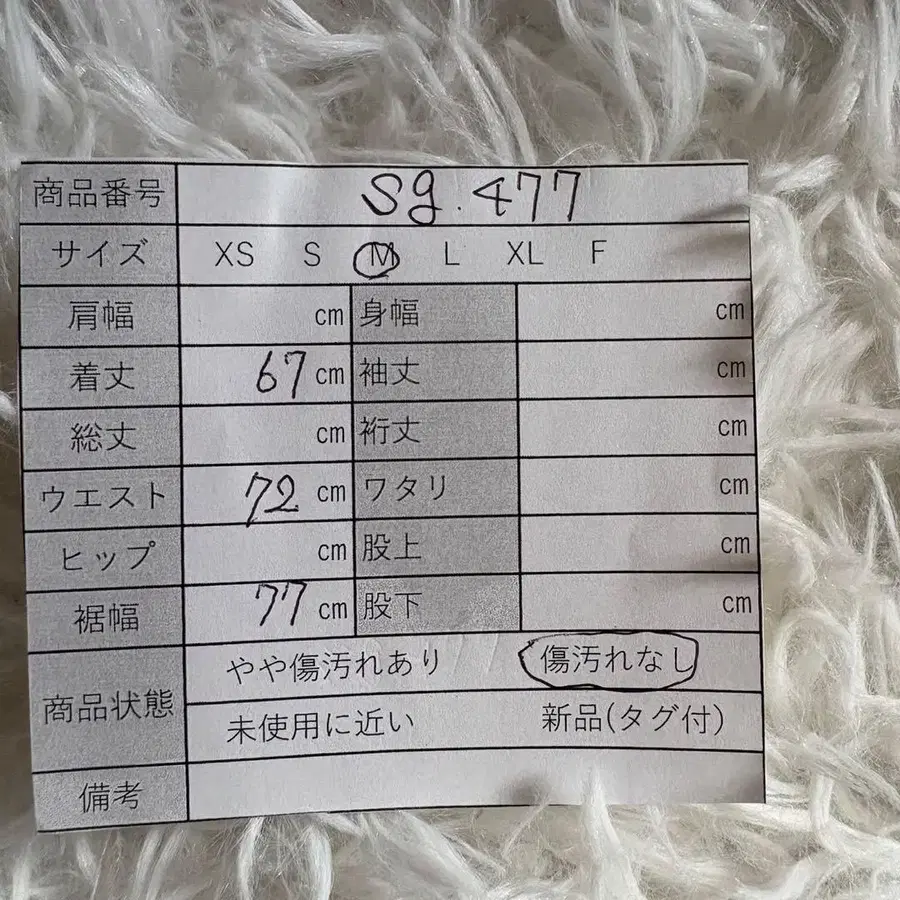 商品番号 sg.477
サイズ XS S M L XL F
肩幅 cm 身幅 cm
着丈 67 cm 袖丈 cm
総丈 cm 裄丈 cm
ウエスト 72 cm ワタリ cm
ヒップ cm 股上 cm
裾幅 77 cm 股下 cm
商品状態 やや傷汚れあり 傷汚れなし
未使用に近い 新品(タグ付)
備考